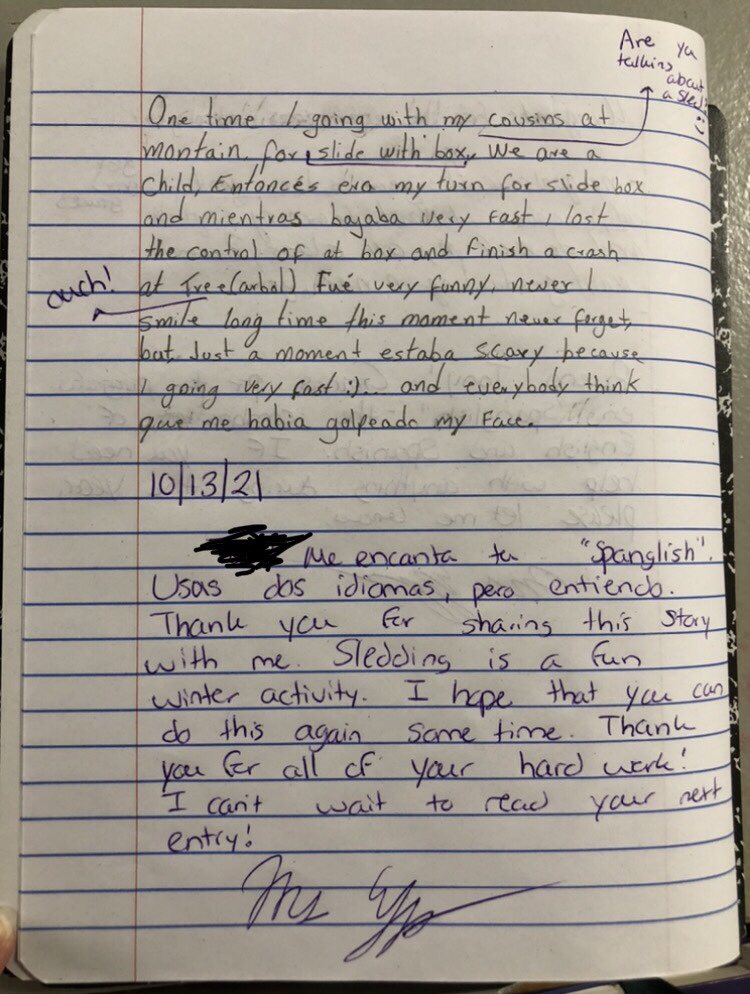 Are you
talking
about
a sled?
:)
One time I going with my cousins at
montain for slide with box, We are a
child, Entonces era my turn for slide box
and mientras bajaba very fast, I lost
the control of at box and finish a crash
ouch!
at Tree(arbol) Fué very funny, never I
smile long time this moment never forget,
but Just a moment estaba scary because
I going very fast :)... and everybody think
que me habia golpeado my Face.
10/13/21
Me encanta tu "Spanglish".
Usas dos idiomas, pero entiendo.
Thank you for sharing this story
with me. Sledding is a fun
winter activity. I hope that you can
do this again some time. Thank
you for all of your hard work!
I can't wait to read your next
entry!